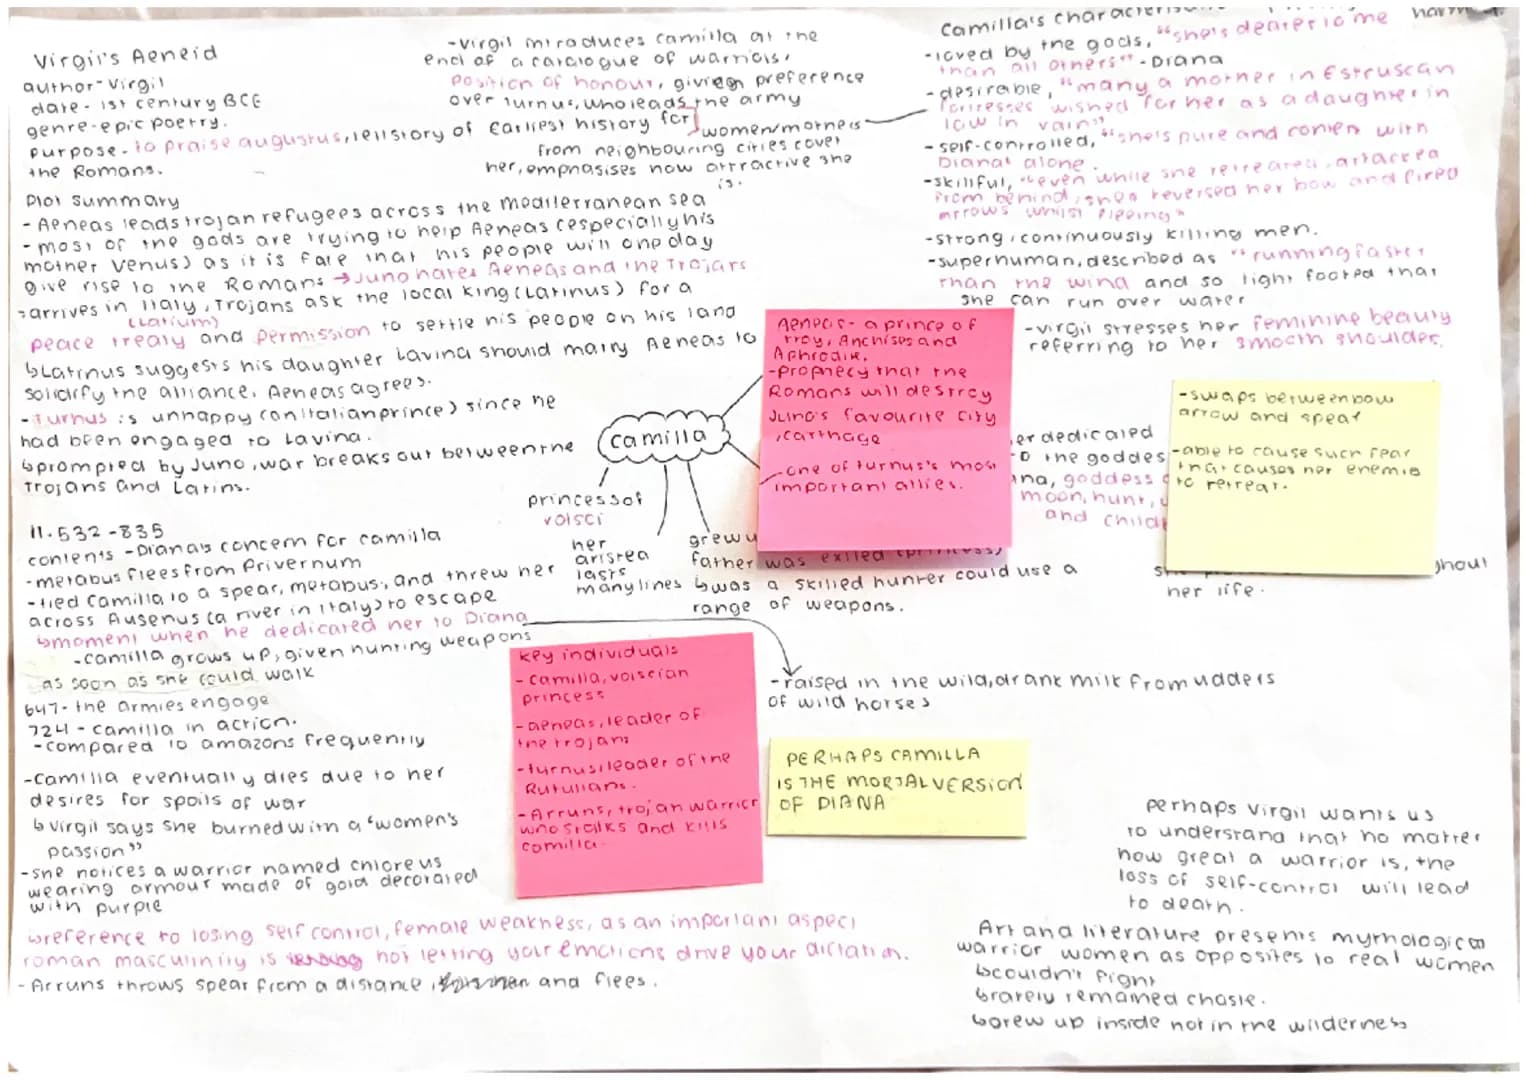 Virgil's Aeneid
author - Virgil
date - 1st century BCE
genre - epic poetry.
purpose - to praise augustus, tell story of earliest history for
the Romans.
-Virgil introduces camilla at the
end of a catalogue of warriors,
position of honour, giving preference
over turnus, who leads the army
women/mothers
from neighbouring cities covet
her, emphasises how attractive she
is.
Plot summary
- Aeneas leads trojan refugees across the mediterranean sea
- most of the gods are trying to help Aeneas (especially his
mother Venus) as it is fate that his people will one day
give rise to the Romans → Juno hates Aeneas and the Trojans
- arrives in Italy, Trojans ask the local king (Latinus) for a
(Latium)
peace treaty and permission to settle his people on his land
↳ Latinus suggests his daughter Lavina should marry Aeneas to
solidify the alliance, Aeneas agrees.
- Turnus is unhappy (an Italian prince) since he
had been engaged to Lavina.
↳ prompted by Juno, war breaks out between the
Trojans and Latins.
11.532-835
contents - Diana's concern for camilla
- metabus flees from Privernum
- tied camilla to a spear, metabus, and threw her
across Ausenus (a river in Italy) to escape
↳ moment when he dedicated her to Diana
- camilla grows up, given hunting weapons
as soon as she could walk
647 - the armies engage
724 - camilla in action.
- compared to amazons frequently
- camilla eventually dies due to her
desires for spoils of war
↳ Virgil says she burned with a "women's
passion"
- she notices a warrior named chloreus
wearing armour made of gold decorated
with purple
↳ reference to losing self control, female weakness, as an important aspect
roman masculinity is not letting your emotions drive your dictation.
- Arruns throws spear from a distance, and flees.
camilla
princess of
volsci
her
aristea
lasts
many lines
grew u
father was exiled (princess)
↳ was a skilled hunter could use a
range of weapons.
- raised in the wild, drank milk from udders
of wild horses
Aeneas - a prince of
troy, Anchises and
Aphrodite.
- prophecy that the
Romans will destroy
Juno's favourite city
, carthage
- one of turnus's most
important allies.
key individuals
- camilla, volscian
princess
- aeneas, leader of
the trojans
- turnus, leader of the
Rutulians.
- Arruns, trojan warrior
who stalks and kills
camilla.
PERHAPS CAMILLA
IS THE MORTAL VERSION
OF DIANA
camilla's
- loved by the gods, "she's dearer to me
than all others" - Diana
- desirable, "many a mother in Estruscan
fortresses wished for her as a daughter in
law in vain"
- self-controlled, "she's pure and content with
Diana alone.
- skillful, "even while she retreated, attacked
from behind, she reversed her bow and fired
arrows whilst fleeing"
- strong, continuously killing men.
- superhuman, described as "running faster
than the wind and so light footed that
she can run over water
- virgil stresses her feminine beauty
referring to her smooth shoulder.
er dedicated
o the goddes
ana, goddess
moon, hunt,
and child
ghout
her life.
- swaps between bow
arrow and spear
- able to cause such fear
that causes her enemie
to retreat.
perhaps Virgil wants us
to understand that no matter
how great a warrior is, the
loss of self-control will lead
to death.
Art and literature presents mythological
warrior women as opposites to real women
↳ couldn't fight
↳ rarely remained chaste.
↳ grew up inside not in the wilderness